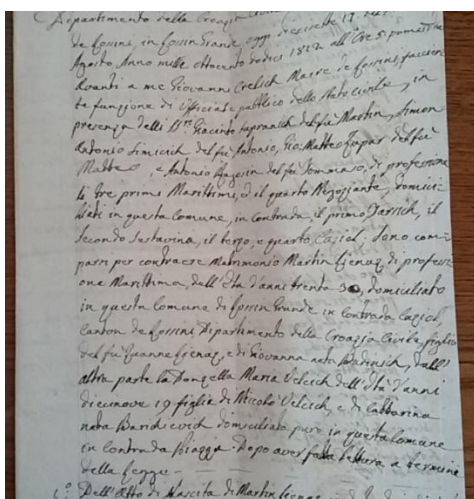 Dipartimento della Croazia
de Lossini, in Lossin Grande, oggi diecisette 17 del
Agosto Anno mille ottocento dodici 1812 all'Ore 5 pomeridiane
Avanti a me Giovanni Crelich Maire de Lossini, facciente
te funzione di Officiale pubblico dello Stato civile, in
presenza delli Sri Giacinto Sopranich del fu Martin, Simon
Antonio Simicich del fu Antonio, Gio. Matteo Zupar del fu
Matteo, e Antonio Ragusin del fu Tommaso, di professione
li tre primi Marittimi, ed il quarto Negoziante, domici
liati in questa Comune, in contrada, il primo, il
secondo, il terzo, e quarto Cagiol. Sono com
parsi per contraere Matrimonio Martin Gienaz, di professi
one Marittimo, dell'età d'anni trenta 30, domiciliato
in questa Comune di Lossin Grande in contrada Cagiol
Canton de Lossini Dipartimento della Croazia Civile, figlio
del fu Zuanne Gienaz, e di Giovanna nata Badinich, dall'
altra parte la Donzella Maria Velcich dell'età d'anni
diecinove 19 figlia di Nicolò Velcich, e di Cattarina
nata domiciliata pure in questa Comune
in contrada Biaggi. Dopo aver fatta lettura a termine
della Legge -
Dell'Atto di Nascita di Martin Gienaz